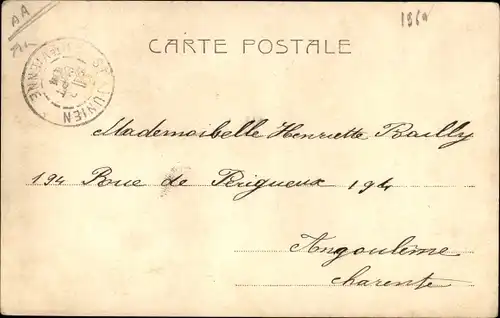 AA
1969
CARTE POSTALE
ST JUNIEN
Mademoiselle Henriette Bailly
194 Rue de Périgueux 194
Angoulême
Charente